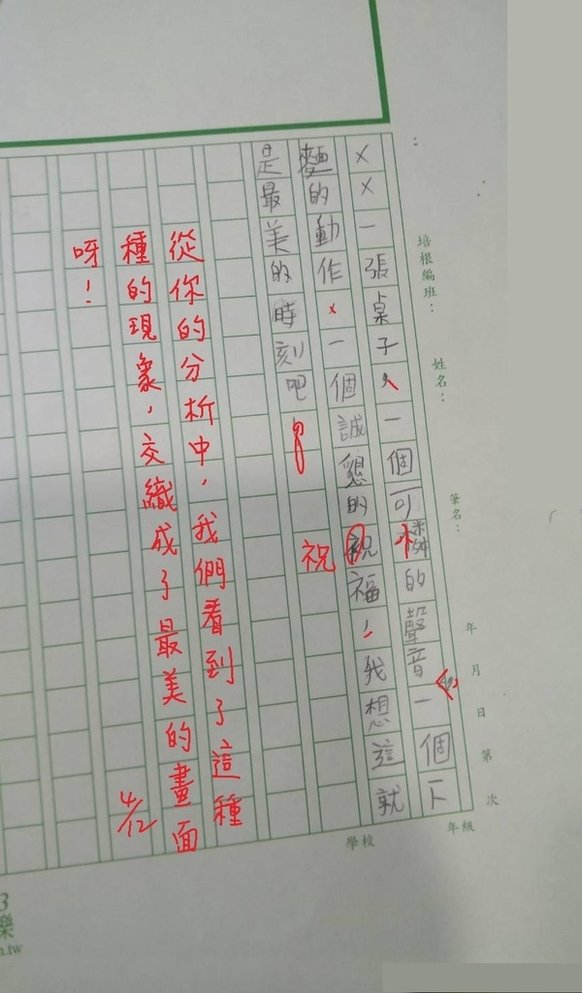 培根編班：
姓名：
筆名：
年 月 日 第 次
學校
年級
××一張桌子、一個可憐的聲音、一個下
麵的動作、一個誠懇的祝福！我想這就
祝
是最美的時刻吧！
從你的分析中，我們看到了這種
種的現象，交織成了最美的畫面
呀！
4/12
3
樂
.tw